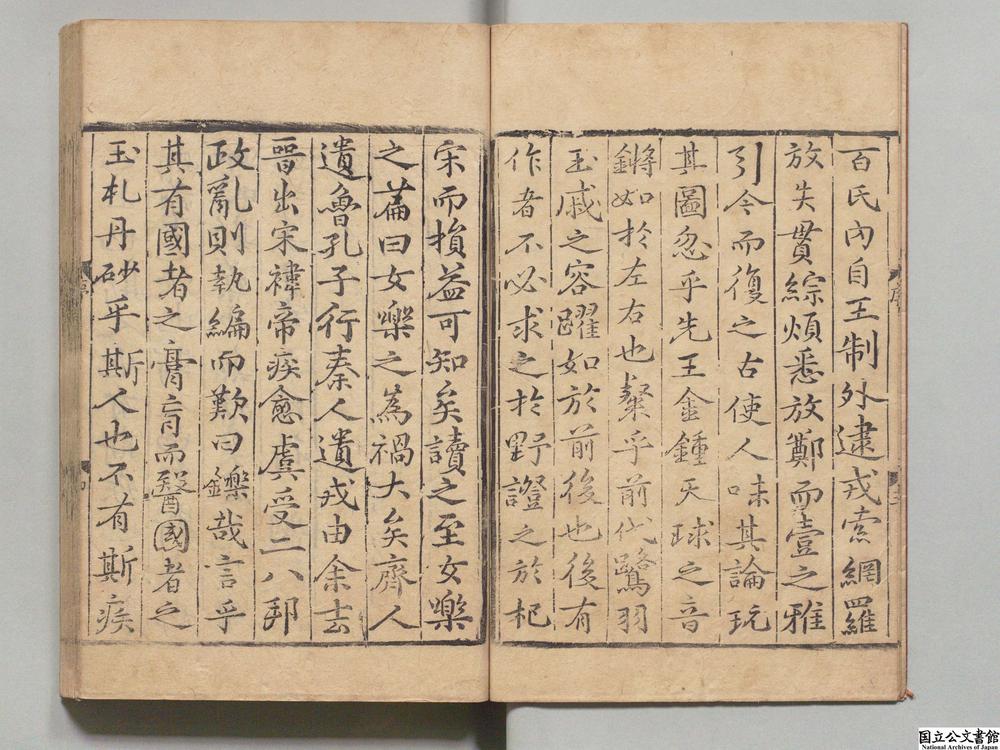 百氏內自王制外逮戎索網羅
放失貫綜煩悉放鄭而壹之雅
引今而復之古使人味其論玩
其圖忽乎先王金鍾天球之音
鏘如於左右也粲乎前代鷺羽
玉戚之容躍如於前後也後有
作者不必求之於野證之於杞
宋而損益可知矣讀之至女樂
之篇曰女樂之為禍大矣齊人
遺魯孔子行秦人遺戎由余去
晉出宋褘帝疾愈虞受二八邦
政亂則執編而歎曰鑠哉言乎
其有國者之膏肓而醫國者之
玉札丹砂乎斯人也不有斯疾
序
国立公文書館
National Archives of Japan